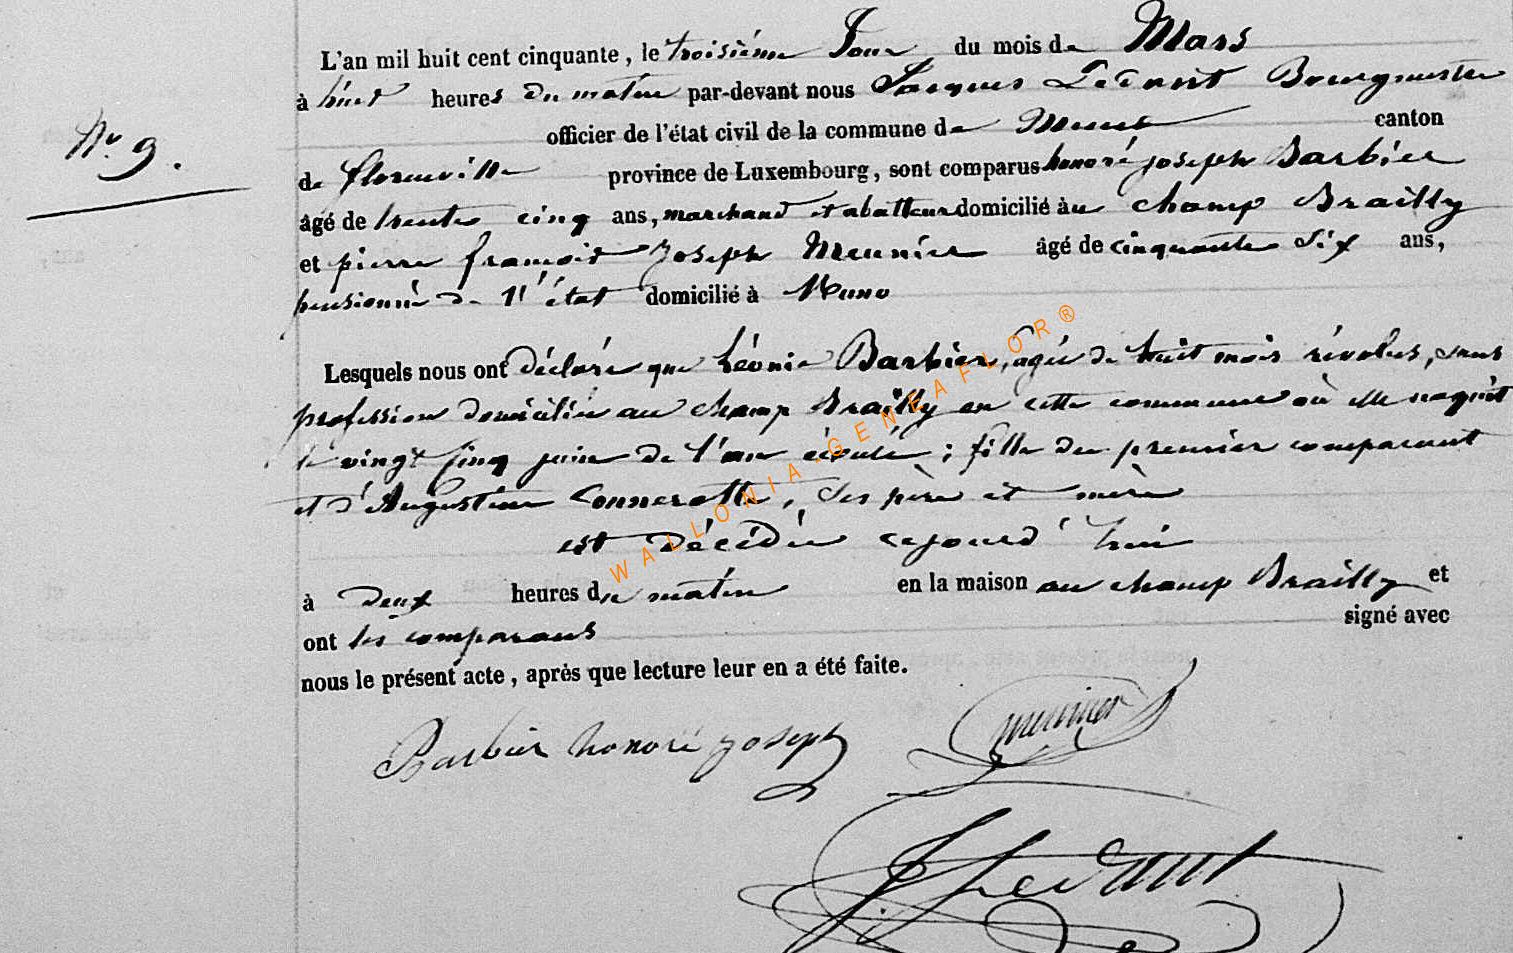 L'an mil huit cent cinquante, le troisième Jour du mois de Mars
à huit heures du matin par-devant nous Jacques Ledant Bourgmestre
officier de l'état civil de la commune de Muno canton
No 9.
de florenville province de Luxembourg, sont comparus honoré joseph Barbier
âgé de trente cinq ans, marchand et abatteur domicilié au champ Brailly
et pierre françois Joseph Meunier âgé de cinquante six ans,
pensionné de l'état domicilié à Muno
Lesquels nous ont déclaré que Léonie Barbier, agée de huit mois révolus, sans
profession domiciliée au champ Brailly en cette commune où elle naquit
le vingt cinq juin de l'an écoulé ; fille du premier comparant
et d'Augustine Connerotte, ses père et mère
est décédée cejourd'hui
à deux heures du matin en la maison au champ Brailly et
ont les comparans signé avec
nous le présent acte, après que lecture leur en a été faite.
Barbier honoré joseph meunier
J Ledant
WALLONIA-GENEAFLOR®